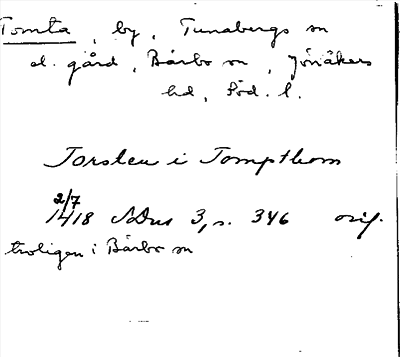 Tomta, by, Tunabergs sn
el. gård, Bärbo sn, Jönåkers
hd, Söd. l.
Torsten i Tompthom
2/7
1418 SDns 3, s. 346 orig.
troligen i Bärbo sn